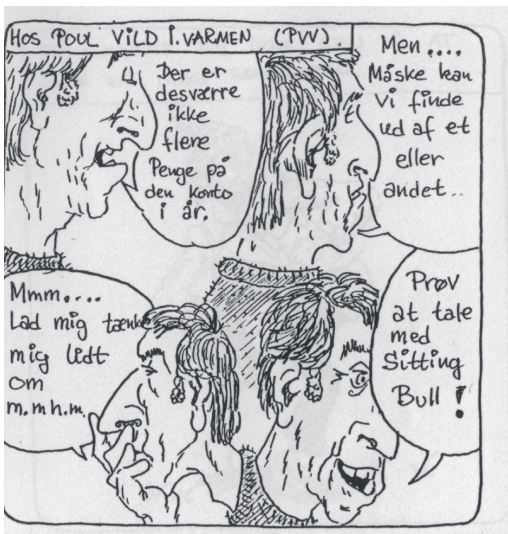 HOS POUL VILD I.VARMEN (PVV)
Der er
desværre
ikke
flere
Penge på
den konto
i år.
Men ....
Måske kan
vi finde
ud af et
eller
andet..
Mmm....
Lad mig tænke
mig lidt
om
m.mhm.
Prøv
at tale
med
Sitting
Bull !